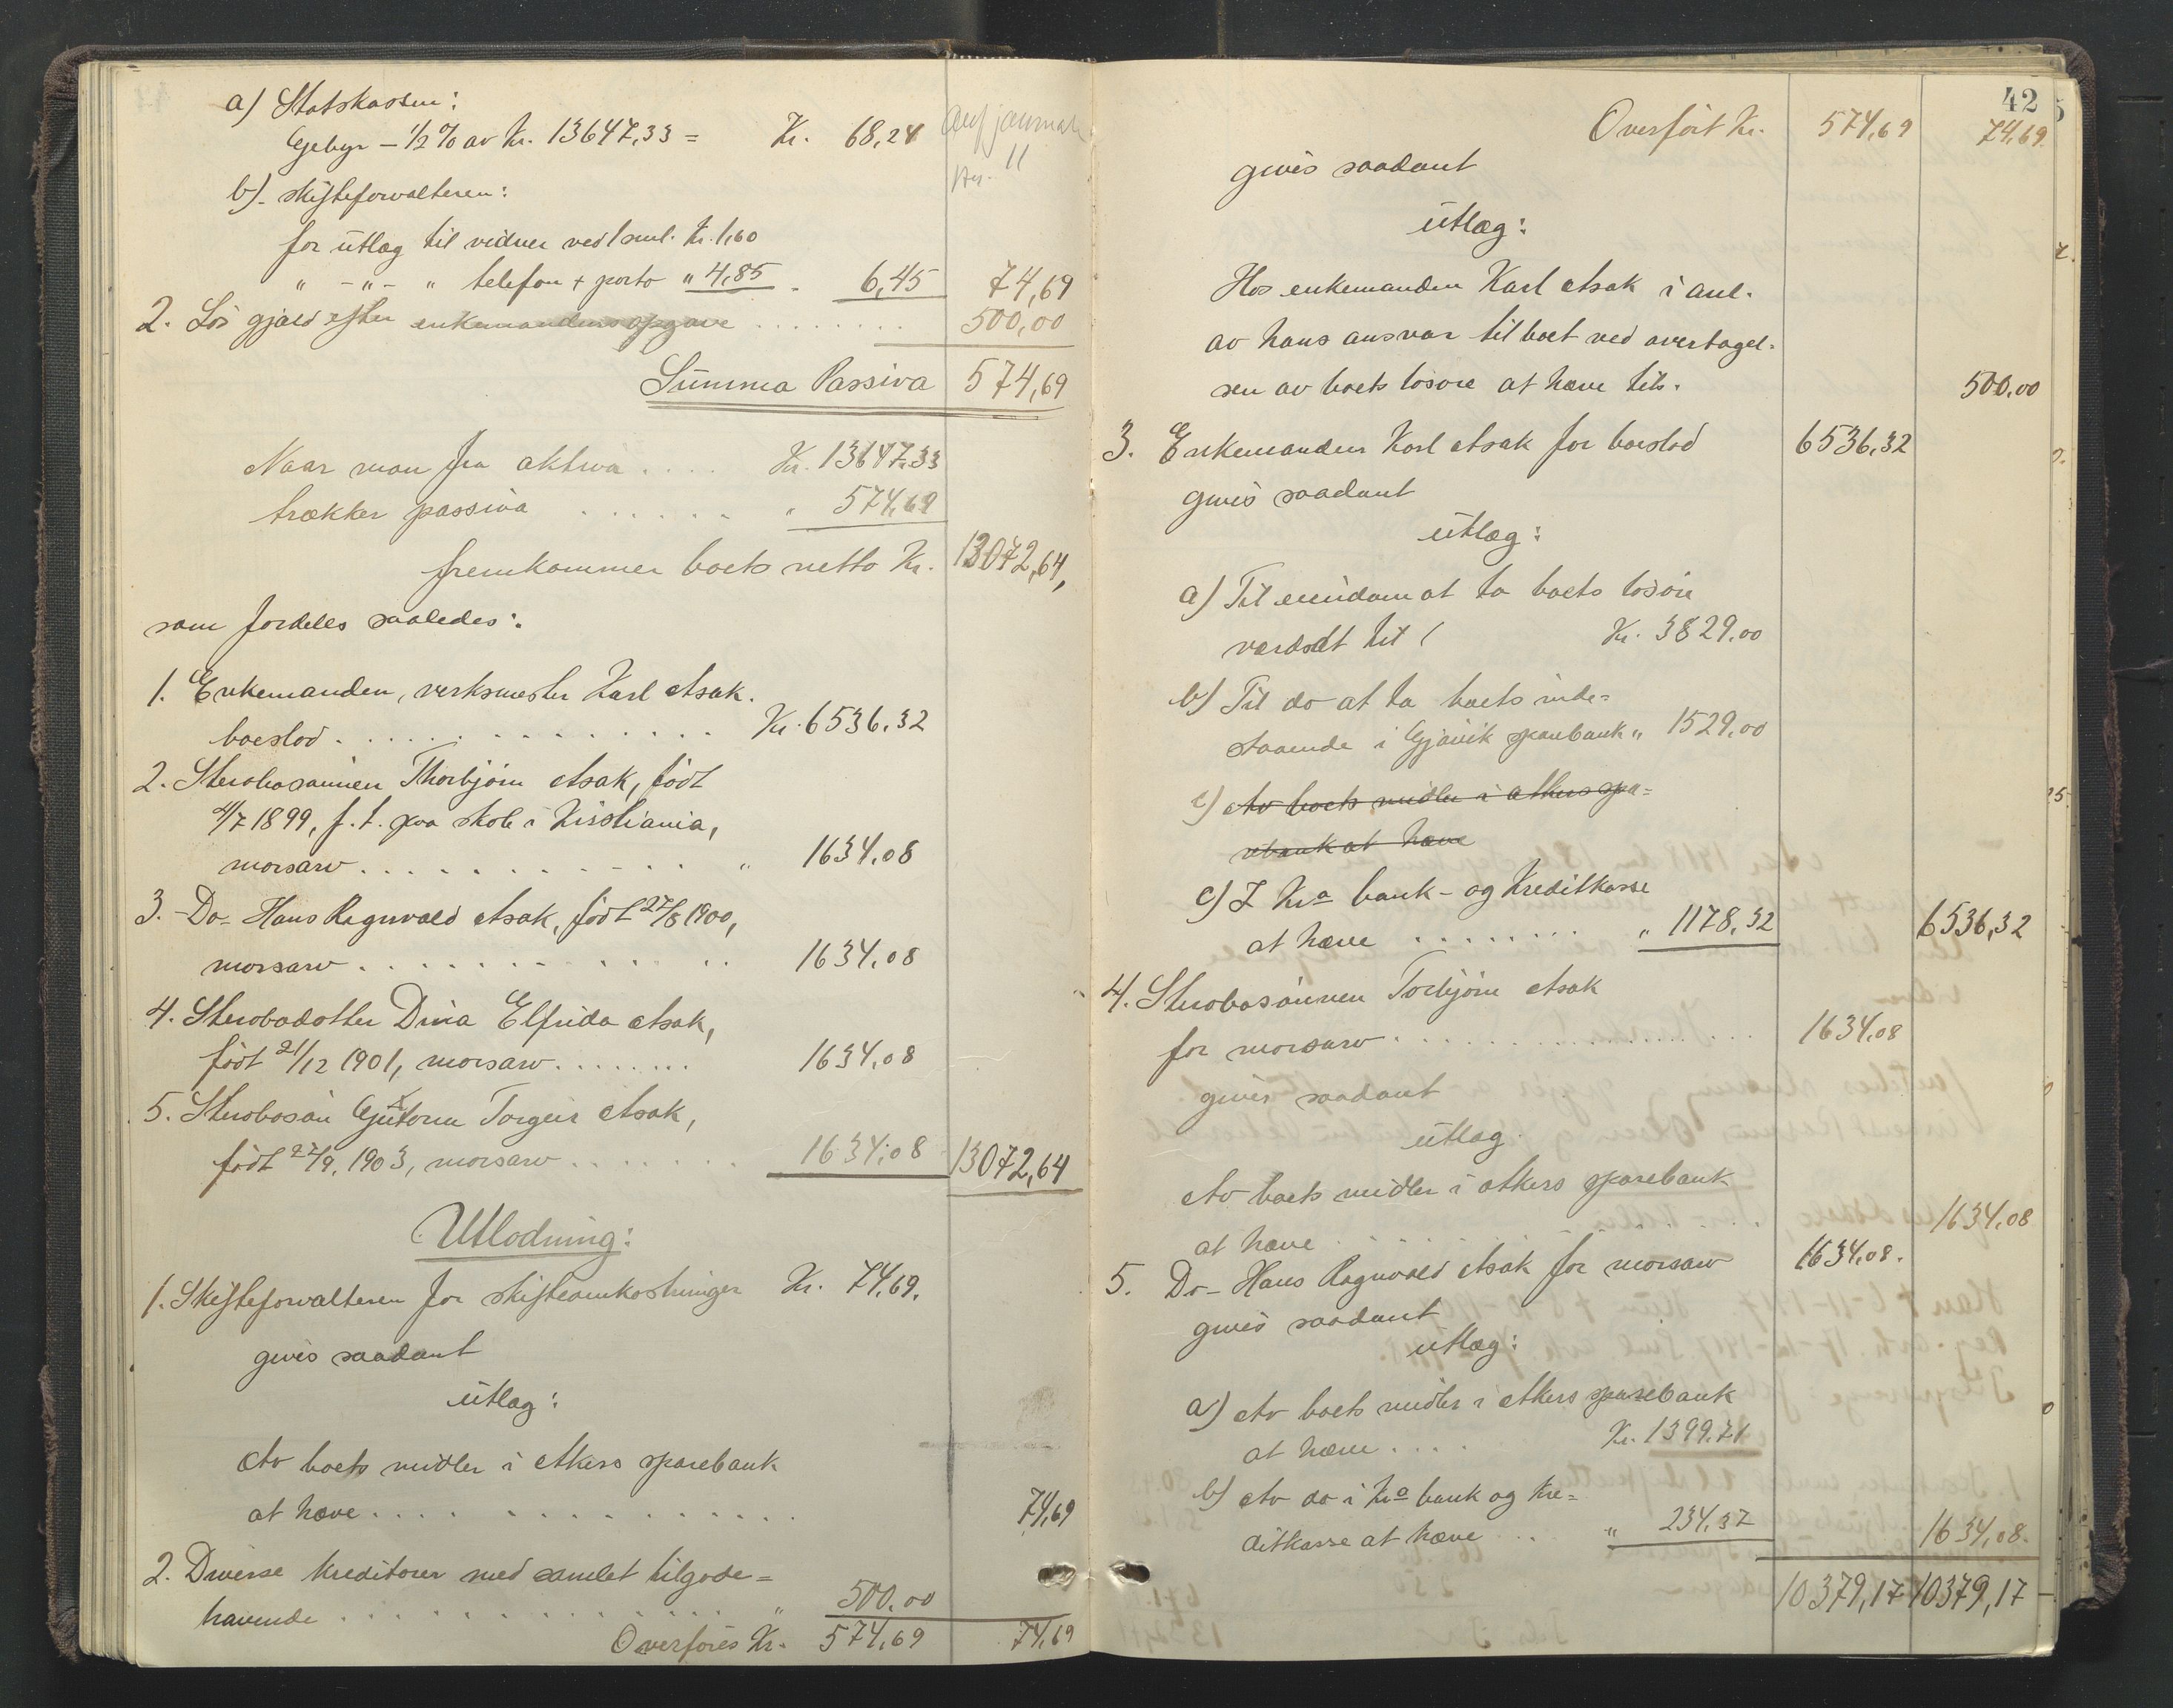 a) Statskassen:
Gebyr - 1/2 % av Kr. 13647,33 = Kr. 68,24
nr. 11
b). skifteforvalteren:
for utlæg til vidner ved 1 saml. Kr. 1,60
" -"- " telefon + porto " 4,85 - 6,45 74,69
2. Løs gjæld efter enkemandens opgave ........ 500,00
Summa Passiva 574,69
Naar man fra aktiva .... Kr. 13647,33
trækker passiva ...... " 574,69
fremkommer boets netto Kr. 13072,64,
som fordeles saaledes:
1. Enkemanden, verksmester Karl Asak.
boeslod .............. Kr. 6536,32
2. Sterbosønnen Thorbjørn Asak, født
4/7 1899, f.t. paa skole i Kristiania,
morsarv ............ " 1634,08
3. -Do- Hans Ragnvald Asak, født 27/8 1900,
morsarv ............ 1634,08
4. Sterbodatter Dina Elfrida Asak,
født 21/12 1901, morsarv ........ 1634,08
5. Sterbosøn Guttorm Torgeir Asak,
født 27/9, 1903, morsarv ....... 1634,08 13072,64
Utlodning:
1. Skifteforvalteren for skifteomkostninger Kr. 74,69.
gives saadant
utlæg:
Av boets midler i Akers sparebank
at hæve ................ 74,69
2. Diverse kreditorer med samlet tilgode=
havende .............. " 500,00
Overføres Kr. 574,69 74,69
42
Overført Kr. 574,69 74,69.
gives saadant
utlæg:
Hos enkemanden Karl Asak i anl.
av hans ansvar til boet ved overtagel-
sen av boets løsøre at hæve 500,00
3. Enkemanden Karl Asak for boeslod 6536,32
gives saadant
utlæg:
a) Til eiendom at ta boets løsøre
værdsat til Kr. 3829,00
b) Til do at ta boets inde=
staaende i Gjøvik sparebank " 1529,00
c) Av boets midler i Akers spa=
rebank at hæve
c) I Kra bank- og Kreditkasse
at hæve ........ " 1178,32 6536,32
4. Sterbosønnen Torbjørn Asak
for morsarv ................ 1634,08
gives saadant
utlæg.
Av boets midler i Akers sparebank
at hæve ........ 1634,08
5. Do- Hans Ragnvald Asak for morsarv 1634,08.
gives saadant
utlæg:
a) Av boets midler i Akers sparebank
at hæve .... Kr. 1399,71
b) Av do i Kra bank og Kre=
ditkasse at hæve ... " 234,37 1634,08.
10379,17 10379,17